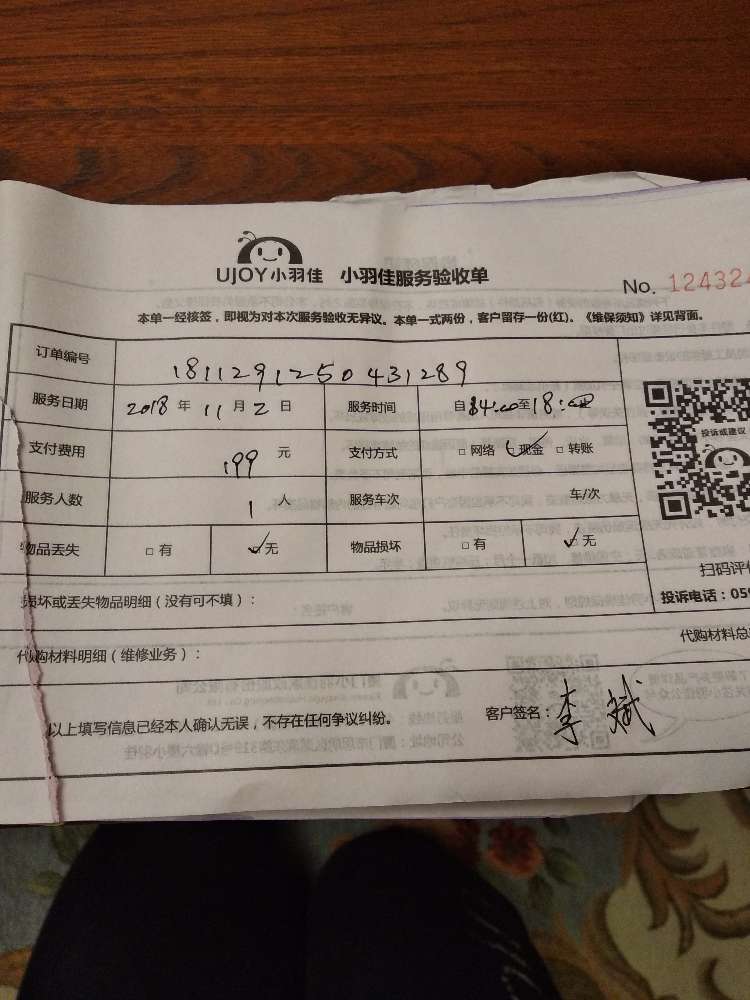 UJOY小羽佳 小羽佳服务验收单
No. 124324
本单一经核签，即视为对本次服务验收无异议。本单一式两份，客户留存一份(红)。《维保须知》详见背面。
订单编号 1811291250431289
服务日期 2018 年 11 月 2 日 服务时间 自 14:00 至 18:00
支付费用 199 元 支付方式 □ 网络 ✓ 现金 □ 转账
服务人数 1 人 服务车次 车/次
物品丢失 □ 有 ✓ 无 物品损坏 □ 有 ✓ 无
投诉或建议
扫码评价
投诉电话：059
损坏或丢失物品明细（没有可不填）：
代购材料明细（维修业务）： 代购材料总
以上填写信息已经本人确认无误，不存在任何争议纠纷。 客户签名：李斌